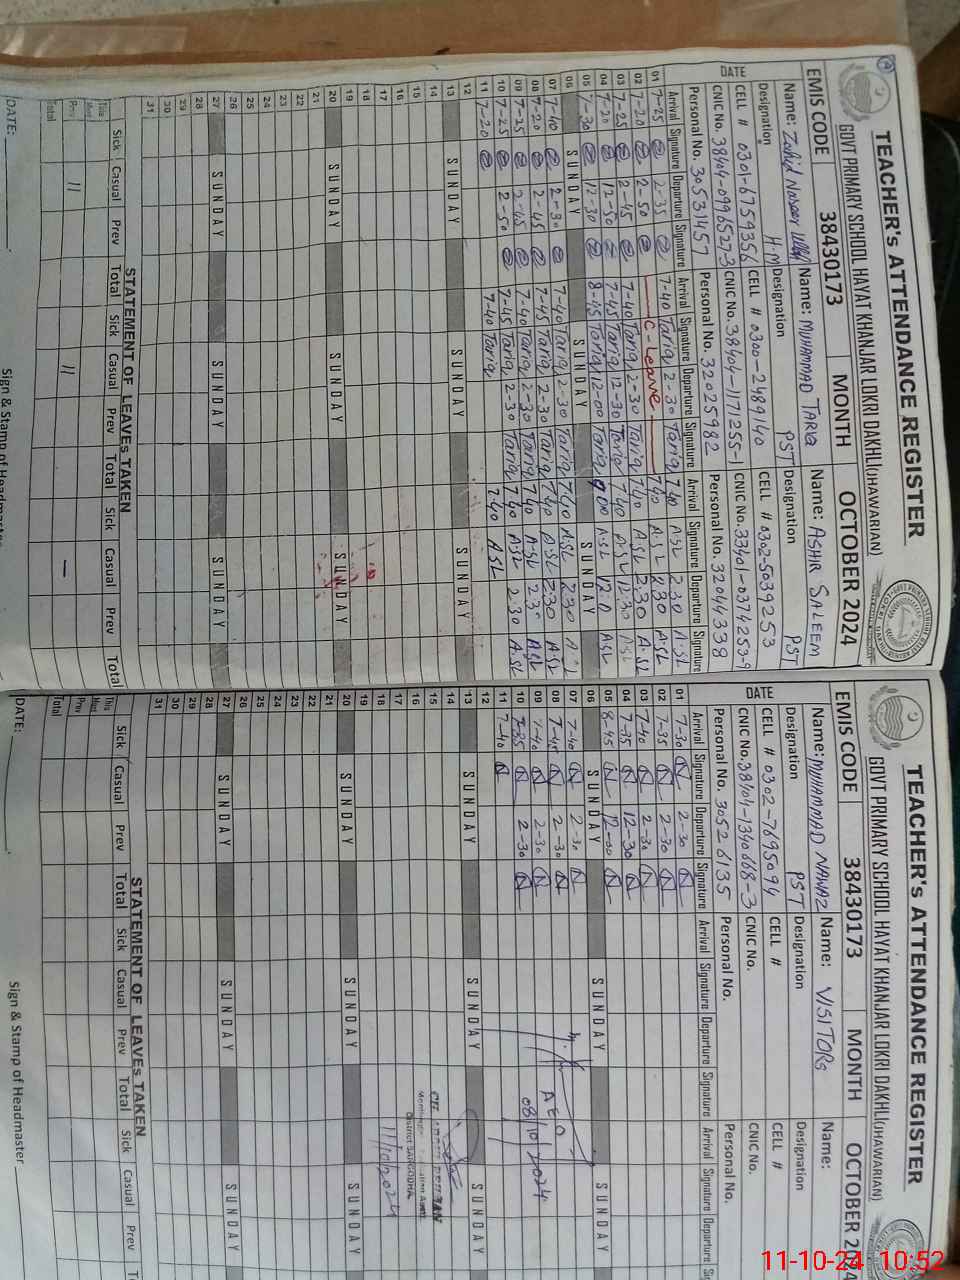 TEACHER's ATTENDANCE REGISTER
GOVT PRIMARY SCHOOL HAYAT KHANJAR LOKRI DAKHLI(JHAWARIAN)
EMIS CODE 38430173 MONTH OCTOBER 2024
Name: Zahid Naseer Name: MUHAMMAD TARIQ Name: ASHIR SALEEM
Designation H.M Designation PST Designation PST
CELL # 0301-6759356 CELL # 0300-2489140 CELL # 0302-5039253
CNIC No. 38404-0996527-3 CNIC No. 38404-1171255-1 CNIC No. 33401-0374253-9
Personal No. 30531457 Personal No. 32025982 Personal No. 32044338
DATE Arrival Signature Departure Signature Arrival Signature Departure Signature Arrival Signature Departure Signature
01 7-25 2-35 7-40 Tariq 2-30 Tariq 7 40 A.SL 2 30 A.SL
02 7-20 2-50 C-Leave 7 40 A.SL 2 30 A.SL
03 7-25 2-45 7-40 Tariq 2-30 Tariq 7 40 A.SL 2 30 A.SL
04 7-20 12-50 7-45 Tariq 12-30 Tariq 7 40 A.SL 12 30 A.SL
05 7-30 12-30 8-45 Tariq 12-00 Tariq A.SL A.SL
06 SUNDAY SUNDAY SUNDAY
07 7-40 2-30 7-40 Tariq 2-30 Tariq 7 40 A.SL 2 30
08 7-20 2-45 7-45 Tariq 2-30 Tariq 7 40 A.SL 2 30 A.SL
09 7-25 2-45 7-40 Tariq 2-30 Tariq 7 40 A.SL 2 30 A.SL
10 7-25 2-50 7-45 Tariq 2-30 Tariq 7 40 A.SL 2 30 A.SL
11 7-20 7-40 Tariq 7-40 A.SL
12
13 SUNDAY SUNDAY SUNDAY
14
15
16
17
18
19
20 SUNDAY SUNDAY SUNDAY
21
22
23
24
25
26
27 SUNDAY SUNDAY SUNDAY
28
29
30
31
STATEMENT OF LEAVES TAKEN
Sick Casual Prev Total Sick Casual Prev Total Sick Casual Prev Total
This
Prev
Total
DATE:
Sign & Stamp of Headmaster
TEACHER's ATTENDANCE REGISTER
GOVT PRIMARY SCHOOL HAYAT KHANJAR LOKRI DAKHLI(JHAWARIAN)
EMIS CODE 38430173 MONTH OCTOBER
Name: MUHAMMAD NAWAZ Name: VISITORS Name:
Designation PST Designation Designation
CELL # 0302-7695094 CELL # CELL #
CNIC No. 38404-1340668-3 CNIC No. CNIC No.
Personal No. 30526135 Personal No. Personal No.
DATE Arrival Signature Departure Signature Arrival Signature Departure Signature Arrival Signature Departure
01 7-30 2-30
02 7-35 2-30
03 7-40 2-30
04 7-35 12-30
05 8-45 12-00
06 SUNDAY SUNDAY SUNDAY
07 7-40 2-30
08 7-45 2-30 AEO
09 7-40 2-30 08/10/2024
10 7-35 2-30
11 7-40
12
13 SUNDAY SUNDAY SUNDAY
14
15
16 District SARGODHA
17 11/10/2024
18
19
20 SUNDAY SUNDAY SUNDAY
21
22
23
24
25
26
27 SUNDAY SUNDAY SUNDAY
28
29
30
31
STATEMENT OF LEAVES TAKEN
Sick Casual Prev Total Sick Casual Prev Total Sick Casual Prev
This
Prev
Total
DATE:
Sign & Stamp of Headmaster
11-10-24 10:52